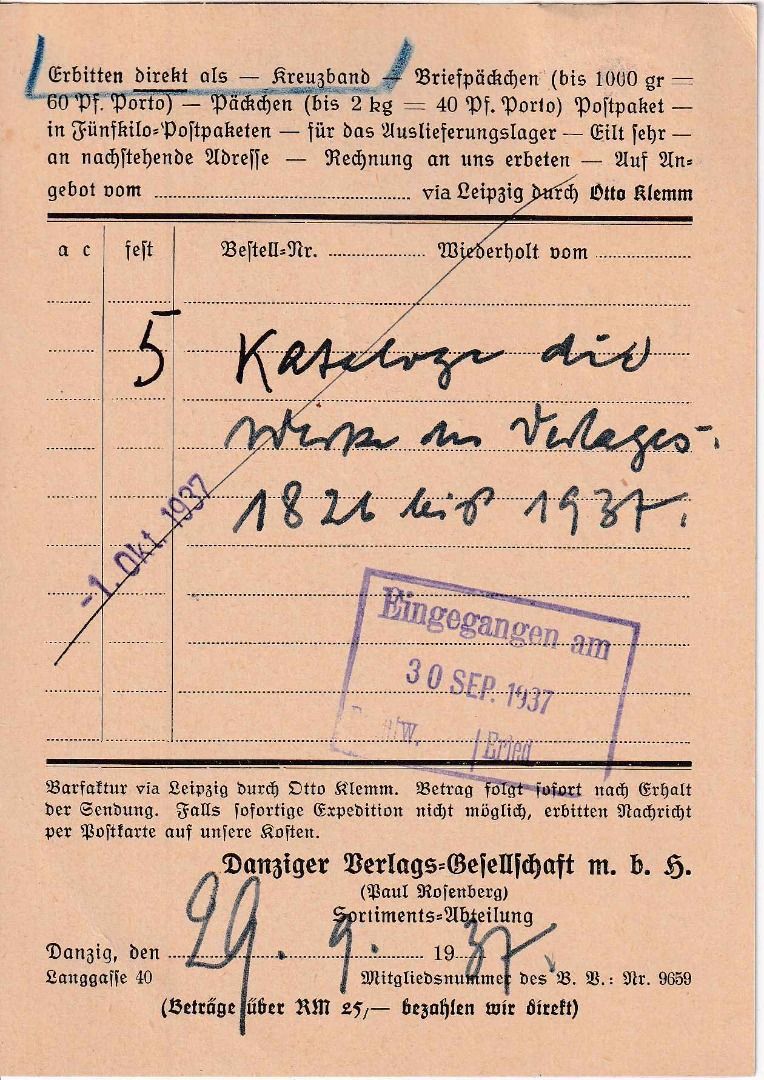 Erbitten direkt als — Kreuzband — Briefpäckchen (bis 1000 gr =
60 Pf. Porto) — Päckchen (bis 2 kg = 40 Pf. Porto) Postpaket —
in Fünfkilo-Postpaketen — für das Auslieferungslager — Eilt sehr —
an nachstehende Adresse — Rechnung an uns erbeten — Auf An-
gebot vom ........ via Leipzig durch Otto Klemm
a c fest Bestell-Nr. ........ Wiederholt vom ........
5 Kataloge die
Werke des Verlages
1826 bis 1937.
- 1. Okt. 1937
Eingegangen am
30 SEP. 1937
Erled
Barfaktur via Leipzig durch Otto Klemm. Betrag folgt sofort nach Erhalt
der Sendung. Falls sofortige Expedition nicht möglich, erbitten Nachricht
per Postkarte auf unsere Kosten.
Danziger Verlags-Gesellschaft m. b. H.
(Paul Rosenberg)
Sortiments-Abteilung
Danzig, den 29. 9. 1937.
Langgasse 40 Mitgliedsnummer des B. V.: Nr. 9659
(Beträge über RM 25,— bezahlen wir direkt)